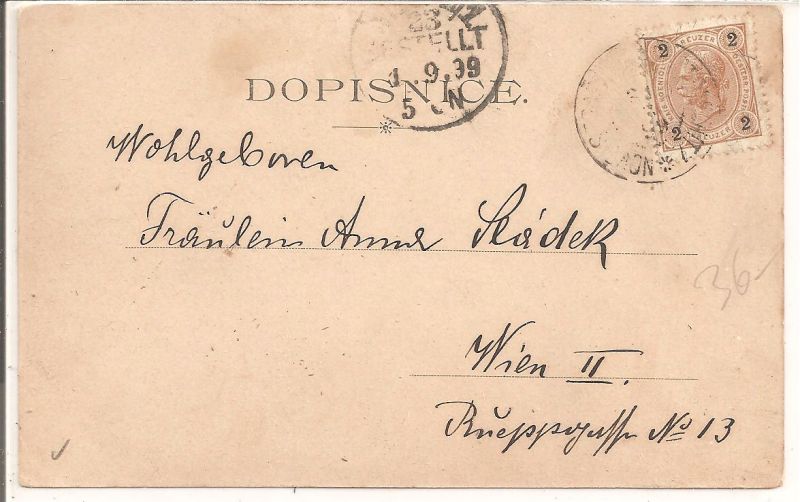 BESTELLT
1.9.99
5 N
DOPISNICE.
2 KREUZER 2
2 KREUZER 2
Wohlgeboren
Fräulein Anna Sládek
36-
Wien II.
Rueppgasse No 13